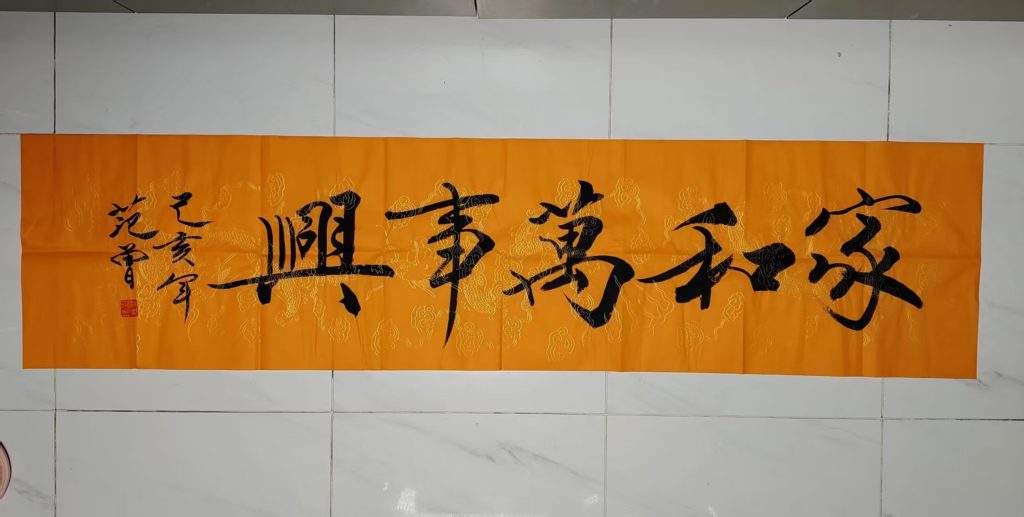 家和萬事興
己亥年
范曾